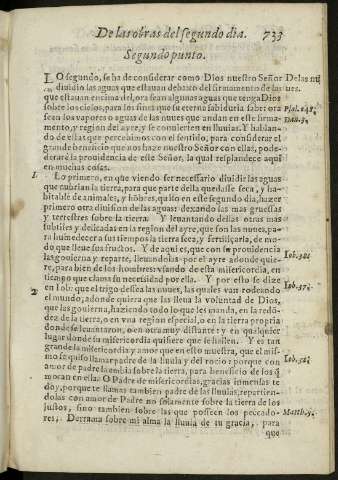 De las obras del segundo dia. 733
Segundo punto.
LO segundo, se ha de considerar como Dios nuestro Señor
diuidio las aguas que estauan debaxo del firmamento de las
que estauan encima del, ora sean algunas aguas que tenga Dios
sobre los cielos, para los fines que su eterna sabiduria sabe: ora
sean los vapores o aguas de las nuues que andan en este firma-
mento, y region del ayre, y se conuierten en lluuias. Y hablan-
do de estas que percebimos con el sentido, para considerar el
grande beneficio que nos haze nuestro Señor con ellas, ponde-
derarè la prouidencia de este Señor, la qual resplandece aqui
en muchas cosas.
Lo primero, en que viendo ser necessario diuidir las aguas
que cubrian la tierra, para que parte della quedasse seca, y ha-
bitable de animales, y hõbres, quiso en este segundo dia, hazer
primero otra diuision de las aguas: dexando las mas gruessas
y terrestres sobre la tierra. Y leuantando dellas otras mas
subtiles y delicadas en la region del ayre, que son las nuues, pa-
ra humedecer a sus tiempos la tierra seca, y fertilizarla, de mo-
do que lleue sus fructos. Y de aqui es, que con su prouidencia
las gouierna y reparte, lleuandolas por el ayre adonde quie-
re, para bien de los hombres: vsando de esta misericordia, en
tiempo que clama su necesidad por ella. Y por esto se dize
en Iob: que el trigo dessea las nuues, las quales van rodeando
el mundo, adonde quiera que las lleua la voluntad de Dios,
que las gouierna, haziendo todo lo que les manda, en la redõ-
dez de la tierra, o en vna region especial, o en la tierra propria
donde se leuantaron, o en otra muy distante: y en qualquier
lugar donde su misericordia quisiere que se hallen. Y es tan
grande la misericordia y amor que en esto muestra, que el mis-
mo se quiso llamar padre de la lluuia y del rocio: porque con
amor de padre la embia sobre la tierra, para beneficio de los q̃
moran en ella. O Padre de misericordias, gracias inmensas te
doy, porque te llamas tambien padre de las lluuias, repartien-
dolas con amor de Padre no solamente sobre la tierra de los
justos, sino tambien sobre las que posseen los peccado-
res. Derrama sobre mi alma la lluuia de su gracia, para
que
De las nu
ues.
Psal. 148.
Dan. 3.
1.
Iob. 38.
Iob. 37.
2
Iob. 38.
Matth. 5.